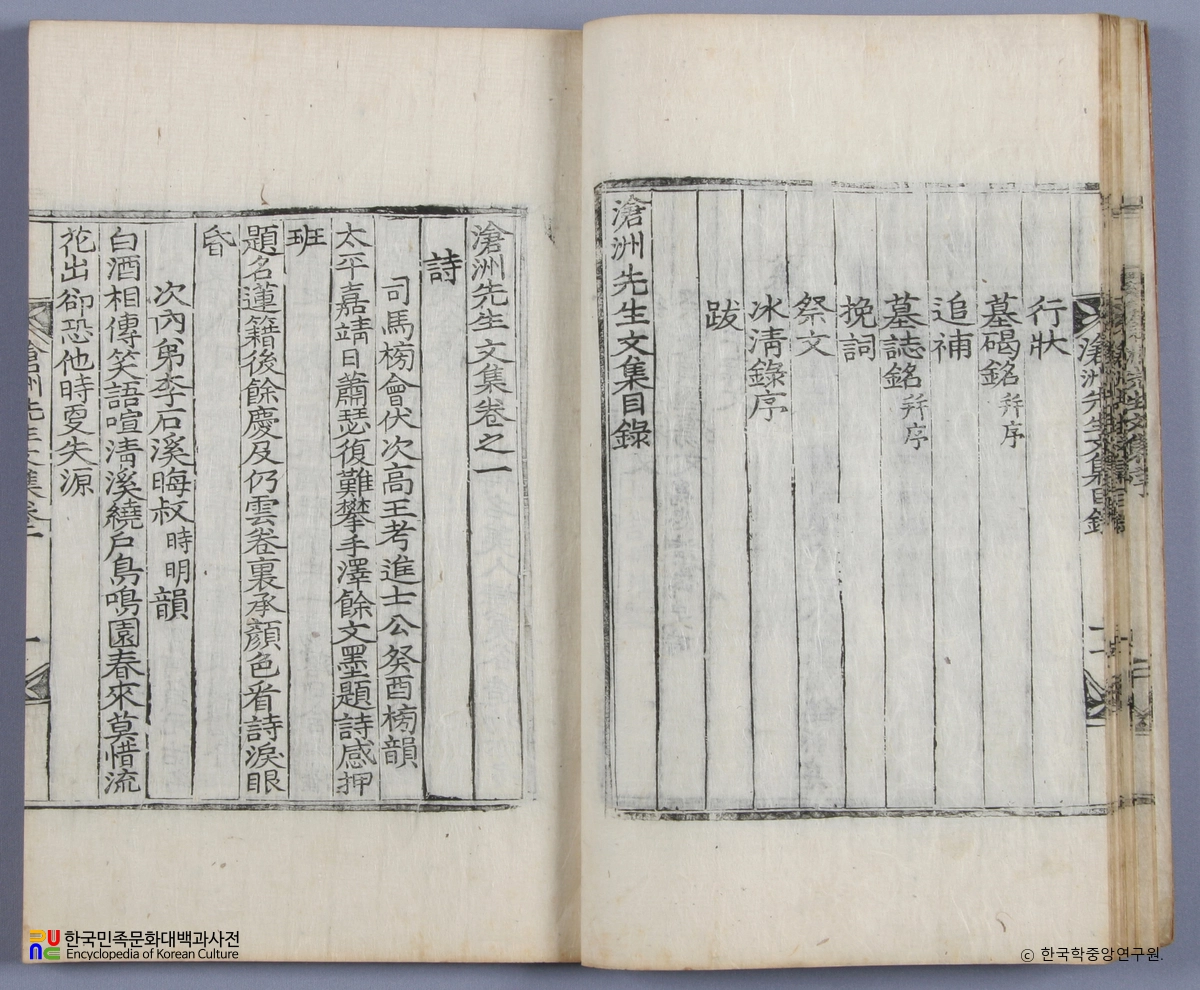 滄洲先生文集目錄
行狀
墓碣銘 幷序
追補
墓誌銘 幷序
挽詞
祭文
氷淸錄序
跋
滄洲先生文集目錄
滄洲先生文集卷之一
詩
司馬榜會伏次高王考進士公癸酉榜韻
太平嘉靖日蕭瑟復難攀手澤餘文墨題詩感押
班
題名蓮籍後餘慶及仍雲卷裏承顔色看詩淚眼
昏
次內弟李石溪晦叔時明韻
白酒相傳笑語喧淸溪繞戶鳥鳴園春來莫惜流
花出卻恐他時更失源
滄洲先生文集卷一
一
한국민족문화대백과사전
Encyclopedia of Korean Culture
ⓒ 한국학중앙연구원.